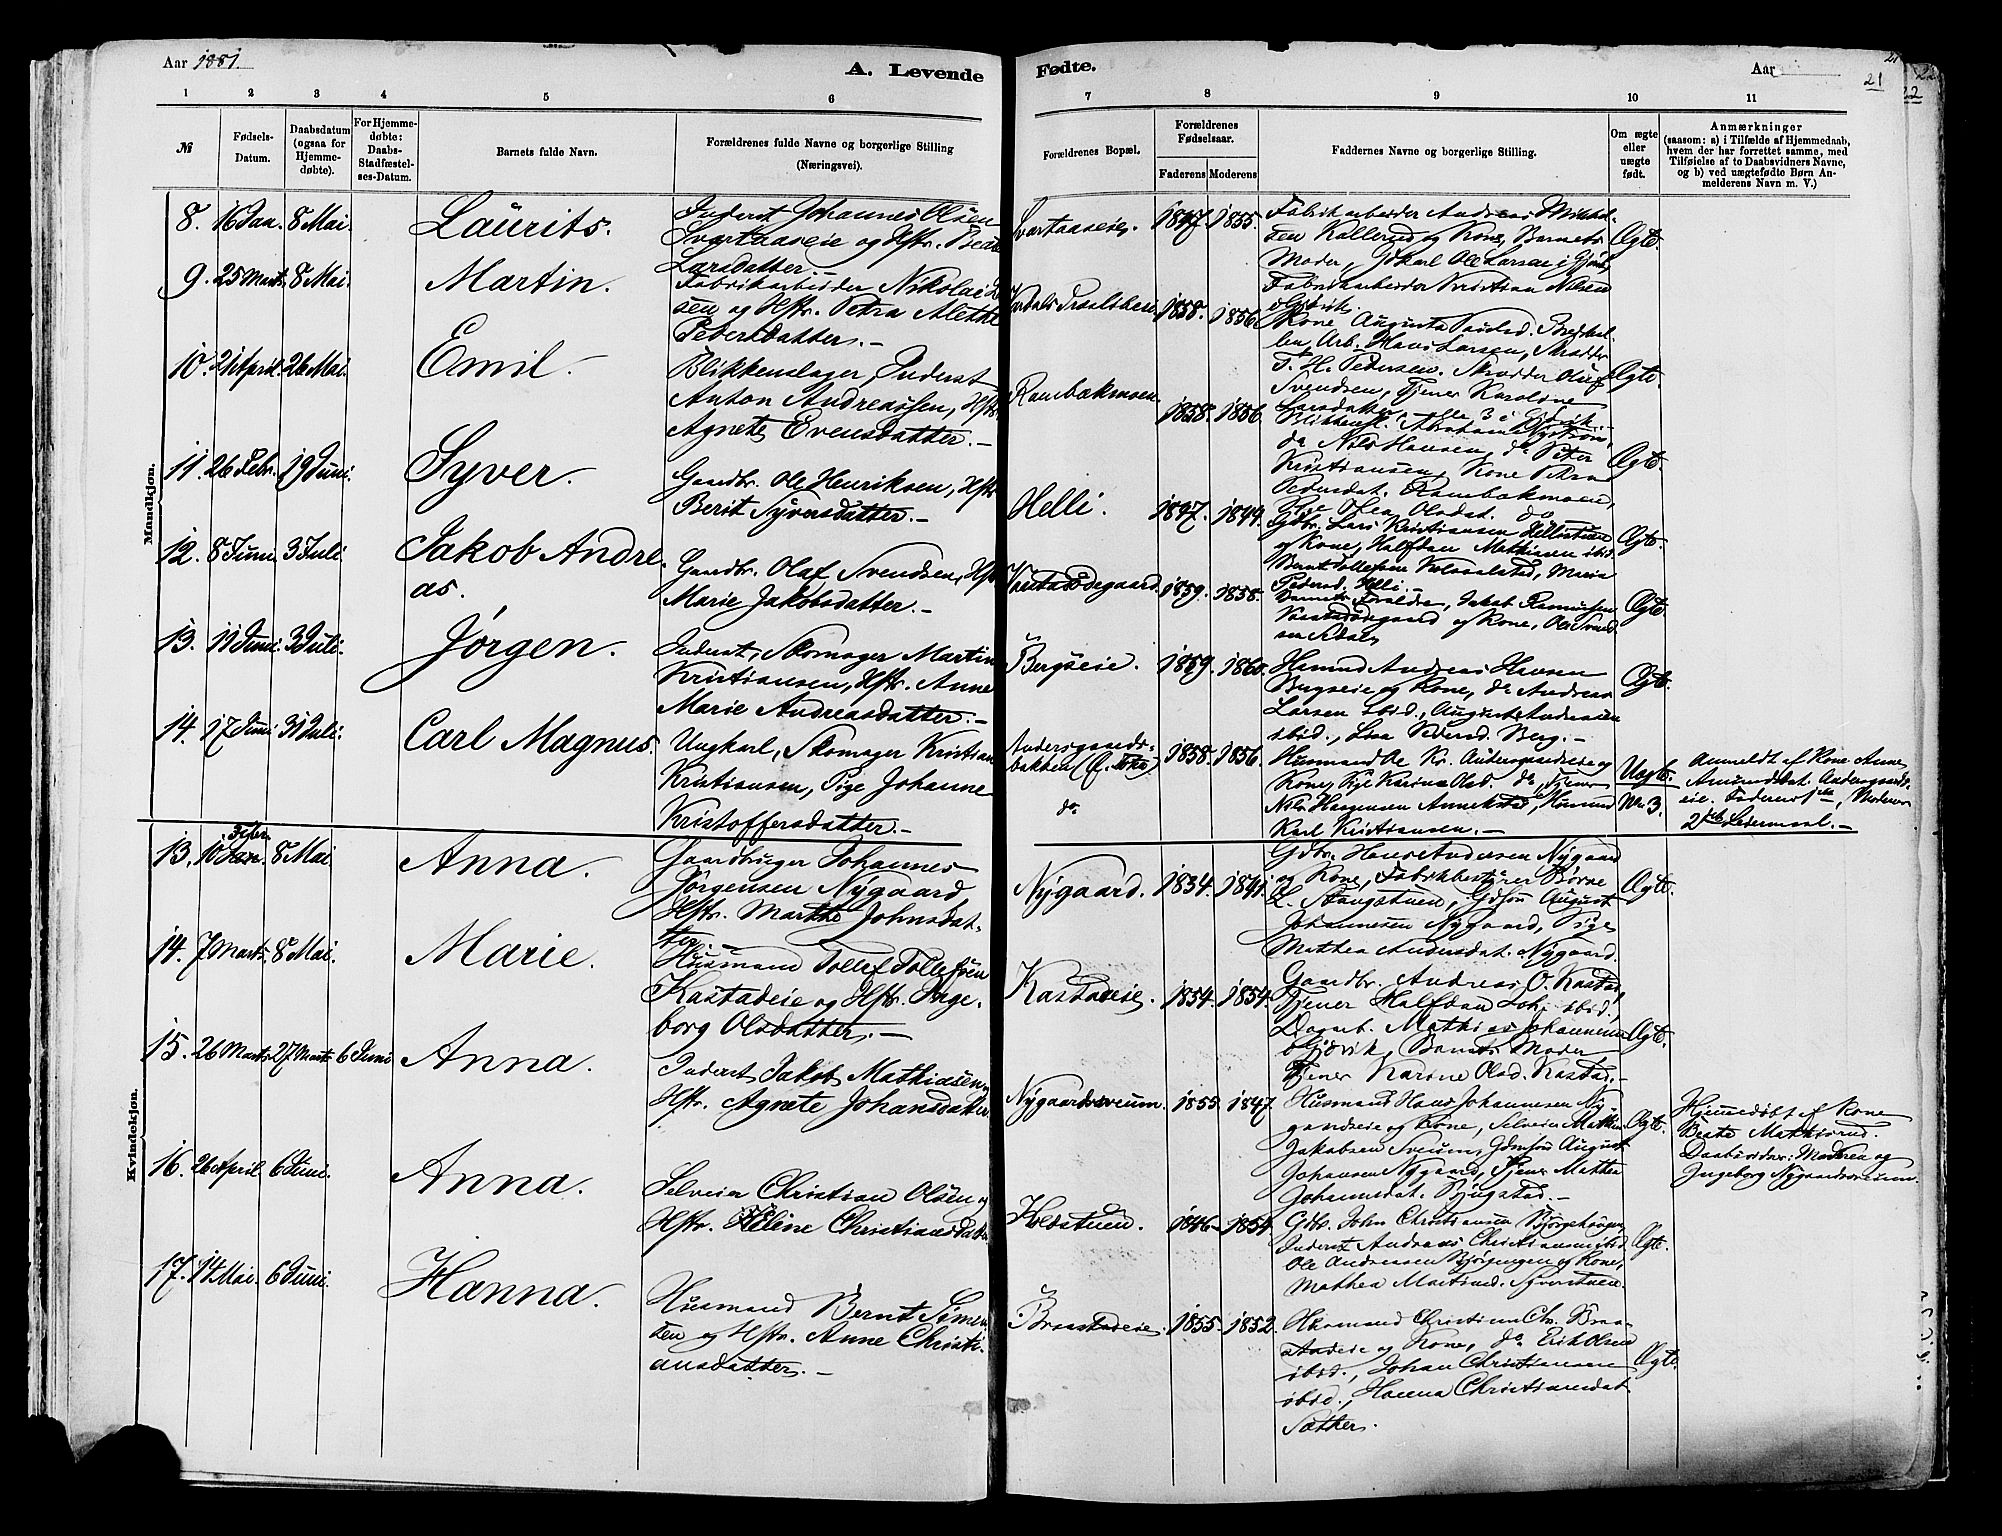 Aar 1881.
A. Levende
Fødte.
Aar
21
22
1 2 3 4 5 6
7 8 9 10 11
№
Fødsels-
Datum.
Daabsdatum
(ogsaa for
Hjemme-
døbte).
For Hjemme-
døbte:
Daabs-
Stadfæstel-
ses-Datum.
Barnets fulde Navn.
Forældrenes fulde Navne og borgerlige Stilling
(Næringsvei).
Forældrenes Bopæl.
Forældrenes
Fødselsaar.
Faderens Moderens
Faddernes Navne og borgerlige Stilling.
Om ægte
eller
uægte
født.
Anmærkninger
(saasom: a) i Tilfælde af Hjemmedaab,
hvem der har forrettet samme, med
Tilføielse af to Daabsvidners Navne,
og b) ved uægtefødte Børn An-
melderens Navn m. V.)
Mandkjøn.
8. 16 Jan. 8 Mai. Laurits.
Inderst Johannes Olsen
Svartaaseie og Hstr. Beate
Larsdatter.
Svartaaseie. 1855.
Fabrikarbeider Andreas
Kallerud og Kone, Barnets
Moder, Ole Larsen i
Ægte.
9. 25 Marts 8 Mai. Martin.
Fabrikarbeider Nikolai
sen og Hstr. Petra Alette
Pedersdatter.
1858. 1856.
Fabrikarbeider Kristian Nilsen
Kone, Augusta
Arb. Hans Larsen, Skrædder
T. H. Pedersen. Skrædder Oluf
Svendsen, Tjener Karoline
Larsdatter, alle 3 i Gjøvik.
Ægte.
10. 21 April. 26 Mai. Emil.
Blikkenslager, Inderst
Anton Andreassen, Hstr.
Agnete Evensdatter.
Rambækmoen. 1858. 1856.
Abraham Nystrøm,
do Nils Hansen, do Peter
Kristiansen, Kone Petra
Pedersdat. Rambækmoen,
Pige Thea Olsdat. do
Ægte.
11. 26 Febr. 19 Juni. Syver.
Gaardbr. Ole Henriksen, Hstr.
Berit Syversdatter.
Helli. 1849.
Gdbr. Lars Kristiansen Hellistuen
og Kone, Halfdan Mathisen ibid.
Helli.
Ægte.
12. 8 Juni. 3 Juli. Jakob Andre
as.
Gaardbr. Olaf Svendsen, Hstr.
Marie Jakobsdatter.
1859. 1858.
Barnets Forældre, Jakob Rasmussen
og Kone, Ole Svend
sen
Ægte.
13. 11 Juni. 3 Juli. Jørgen.
Inderst, Skomager Martin
Kristiansen, Hstr. Anne
Marie Andreasdatter.
Bergseie. 1859. 1860.
Husmd Andreas Hansen
Bergseie og Kone, do Andreas
Larsen ibid., August Andersen
ibid., Lina Pedersd. Berg.
Ægte.
14. 17 Juni 31 Juli. Carl Magnus.
Ungkarl, Skomager Kristian
Kristiansen, Pige Johanne
Kristoffersdatter.
Andersgaards-
bakken
do
1858. 1856.
Husmand Ole Kr. Andersgaardseie og
Kone, Pige Karine Olsd. do, Tjener
Nils Haagensen Annekstad, Husmand
Karl Kristiansen.
Uægte.
No. 3.
Anmeldt af Kone Anne
Amundsdat. Andersgaards-
eie. Faderens 1ste, Moderens
2det Leiermaal.
Kvindekjøn.
13. 10 Febr. 8 Mai Anna.
Gaardbruger Johannes
Jørgensen Nygaard
Hstr. Marthe Johnsdat-
ter.
Nygaard. 1834. 1841.
Gdbr. Hans Andersen Nygaard
og Kone, Fabrikbestyrer Børre
L. Stangstuen, Gdsøn August
Johannesen Nygaard, Pige
Mathea Andersdat. Nygaard.
Ægte.
14. 7 Marts. 8 Mai. Marie.
Husmand Tollef Tollefsen
Kastadeie og Hstr. Inge-
borg Olsdatter.
Kastadeie. 1854. 1854.
Gaardbr. Andreas O. Kastad,
Tjener Halfdan Joh. ibid,
Mathias Johannesen
Gjøvik, Barnets Moder
Tjener Karine Olsd. Kastad.
Ægte.
15. 26 Marts. 27 Marts. 6 Juni Anna.
Inderst Jakob Mathiasen,
Hstr. Agnete Johansdatter
Nygaardsveium. 1855. 1847.
Husmand Hans Johannesen Ny
gaardseie og Kone, Selveier Mathias
Jakobsen Sveium, Gdmsøn August
Johansen Nygaard, Tjener Mathea
Johannesdat. Bjugstad.
Ægte.
Hjemmedøbt af Kone
Beate Mathisrud.
Daabsvidner: Moderen og
Ingeborg Nygaardsveium.
16. 26 April 6 Juni. Anna.
Selveier Christian Olsen og
Hstr. Eline Christiansdatter
Holstuen. 1846. 1854.
Gdbr. John Christiansen Bjørgehaugen,
Inderst Andreas Christiansen ibid,
Ole Andreassen Bjørgengen og Kone,
Mathea Syverstuen.
Ægte.
17. 14 Mai. 6 Juni. Hanna.
Husmand Bernt Simen
sen og Hstr. Anne Christi-
ansdatter.
Braastadeie. 1855. 1852.
Husmand Christian Chr. Braa-
stadeie og Kone, do Erik Olsen
ibid., Johan Christiansen
ibid., Hanna Christiansdat.
Sæther.
Ægte.